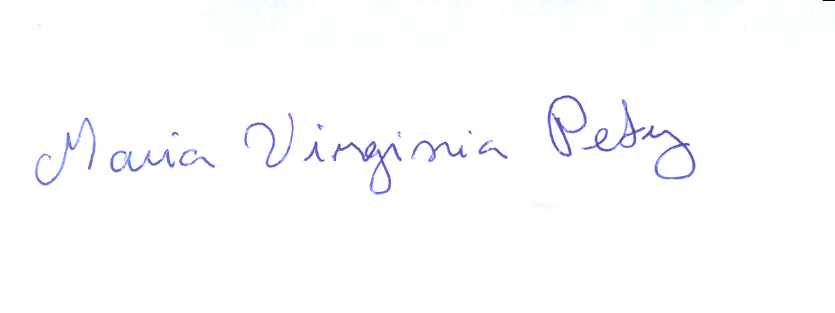 Maria Virginia Pety